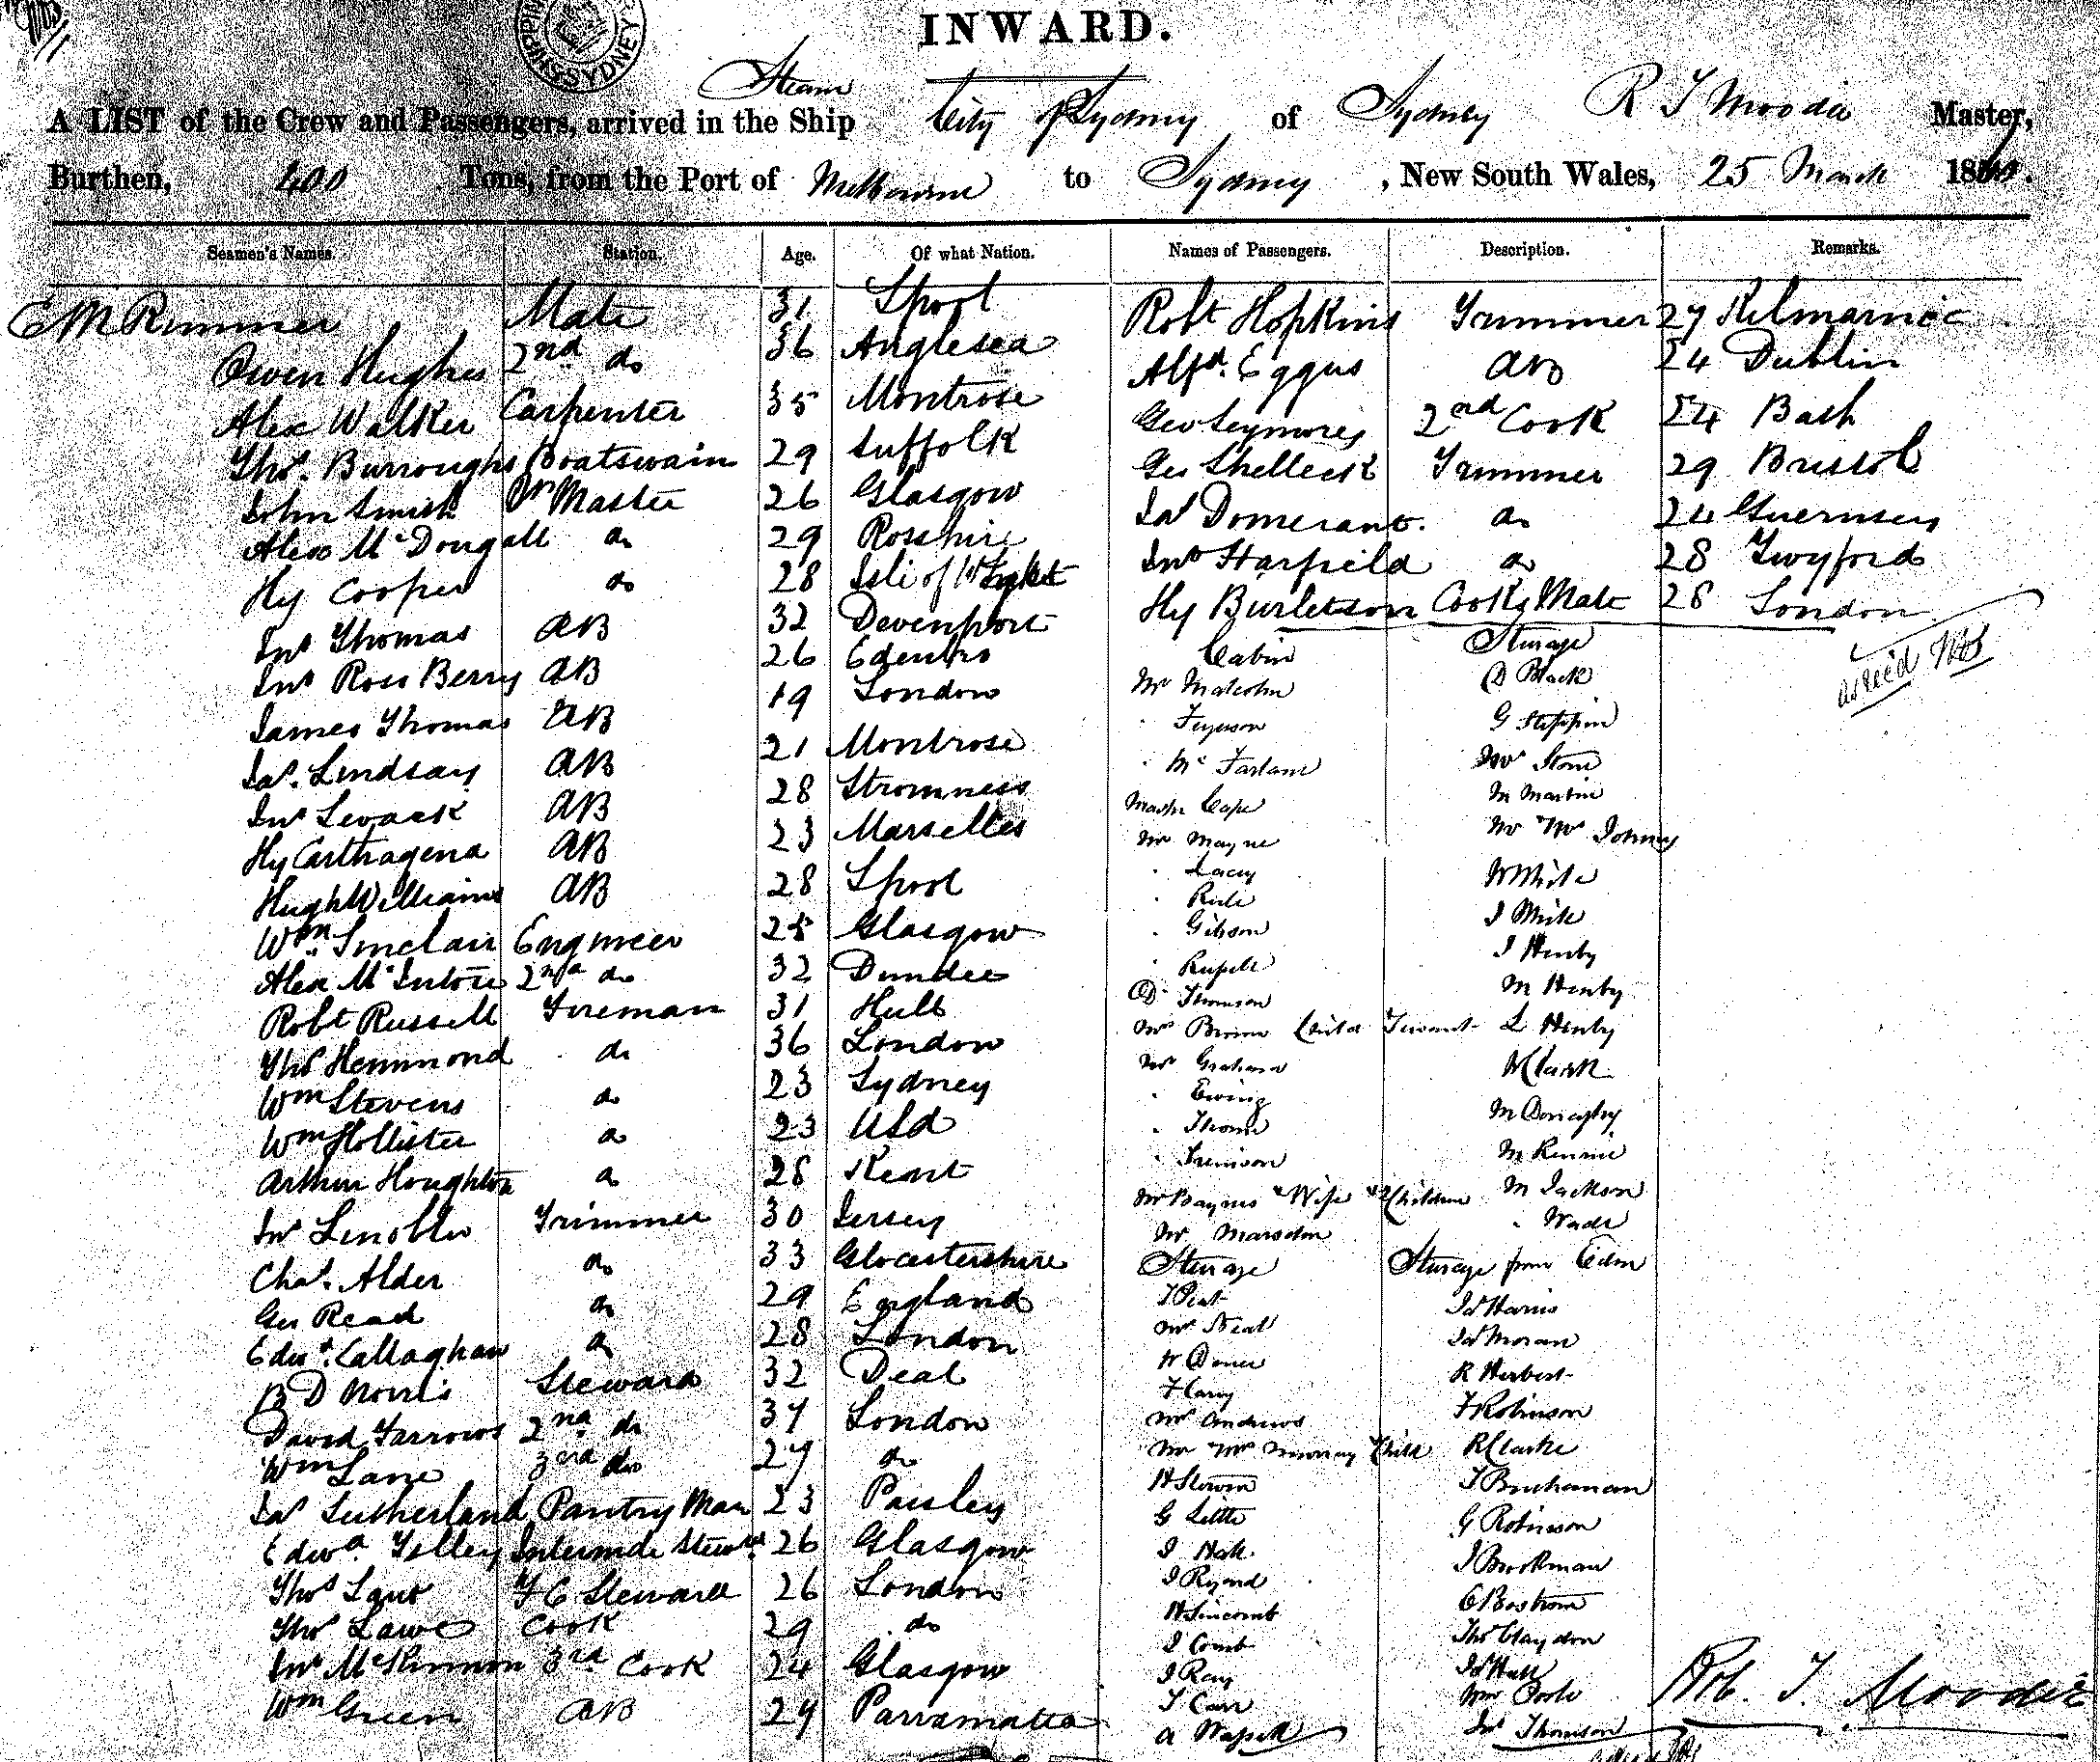 INWARD.
Steam
A LIST of the Crew and Passengers, arrived in the Ship City of Sydney of Sydney R T Moodie Master,
Burthen, 400 Tons, from the Port of Melbourne to Sydney, New South Wales, 25 March 18
Seamen's Names. Station. Age. Of what Nation. Names of Passengers. Description. Remarks.
E M Rimmer Mate 31 Lpool Robt Hopkins Trimmer 27 Kilmarnoc
Owen Hughes 2nd do 36 Anglesea Alfd. Eggus AB 24 Dublin
Alex Walker Carpenter 35 Montrose Geo Seymores 2nd Cook 24 Bath
Thos. Burroughs Boatswain 29 Suffolk Geo Shelleck Trimmer 29 Bristol
John Smith Qr Master 26 Glasgow Jas Domerant. do 24 Guernsey
Alexr McDougall do 29 Rosshire Jno Harfield do 28 Twyford
Hy Cooper do 28 Isle of Wight Hy Burletson Cooks Mate 28 London
Jno Thomas AB 32 Devenport Cabin Sturage
Jno Ross Berry AB 26 Edenbro Mr Malcolm D Black
James Thomas AB 19 London Ferguson G Steppin
Jas. Lindsay AB 21 Montrose McFarlane Stone
Jno Levack AB 28 Stromness Cape M Martin
Hy Carthagena AB 23 Marselles Mr Mayne Johnes
Hugh Williams AB 28 Lpool Lacy W White
Wm. Sinclair Engineer 25 Glasgow Gibson J White
Alex McIntore 2nd do 32 Dundee J Henby
Robt Russell Fireman 31 Hull Thomson M Henby
Thos Hemmond do 36 London Child L Henby
Wm Stevens do 23 Sydney Mr Graham Clark
Wm Hollister do 23 USA Ewing M Donaghy
Arthur Houghton do 28 Kent Thorne M Rennie
Jno Lenoble Trimmer 30 Jersey Mr Baynes Wife & Children M Jackson
Chas. Alder do 33 Glocestershire Mr Marsden Wade
Geo Read do 29 England Sturage Sturage from Eden
Edwd. Callaghan do 28 London Jas Harris
B D Norris Steward 32 Deal Jas Moran
David Farrows 2nd do 37 London T Carry R Herbert
Wm Lane 3rd do 27 do Andrews T Robinson
Jas Sutherland Pantry Man 23 Paisley Murray Child R Clarke
Edwd. Tilley Steward 26 Glasgow G Little J Buchanan
Thos Steward 26 London J Hall G Robinson
Thos Lawe Cook 29 do J Brookman
Jno McKinnon 3rd Cook 24 Glasgow J Comb Thos Claydon
Wm Green AB 24 Parramatta J Ray Jas Hall
T Carr Wm Poole
Jno Thomson
Rob. T. Moodie